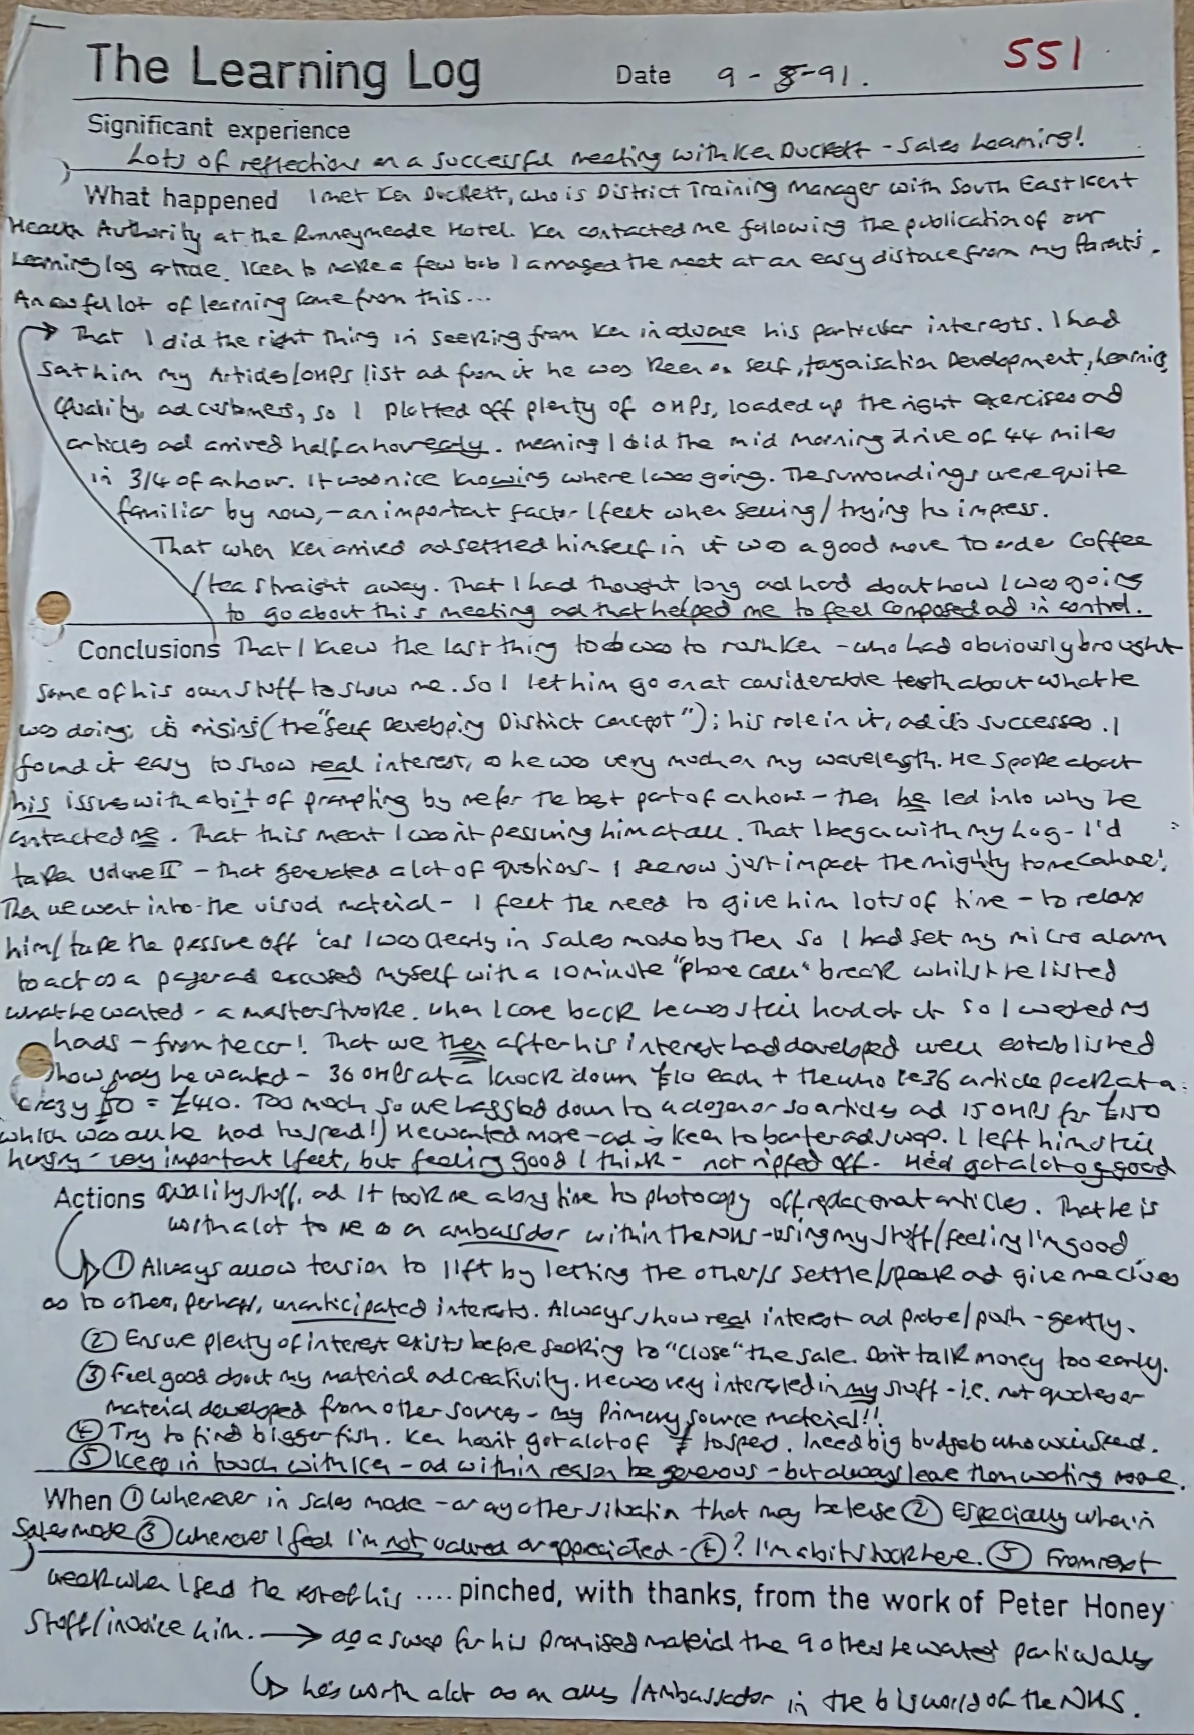 551
The Learning Log Date 9-8-91.
Significant experience
Lots of reflection on a successful meeting with Ken Duckett - Sales Learning!
What happened I met Ken Duckett, who is District Training Manager with South East Kent
Health Authority at the Runneymeade Hotel. Ken contacted me following the publication of our
Learning log article. Keen to make a few bob I arranged the meet at an easy distance from my Parents'.
An awful lot of learning came from this...
That I did the right thing in seeking from Ken in advance his particular interests. I had
sent him my Articles/OHPs list and from it he was keen on self, + organisation Development, learning
Quality, and customers, so I plotted off plenty of OHPs, loaded up the right exercises and
articles and arrived half an hour early. meaning I did the mid morning drive of 44 miles
in 3/4 of an hour. It was nice knowing where I was going. The surroundings were quite
familiar by now, - an important factor I feel when selling/trying to impress.
That when Ken arrived and settled himself in it was a good move to order coffee
/tea straight away. That I had thought long and hard about how I was going
to go about this meeting and that helped me to feel composed and in control.
Conclusions That I knew the last thing to do was to rush Ken - who had obviously brought
some of his own stuff to show me. So I let him go on at considerable length about what he
was doing; its origins (the "Self Developing District concept"); his role in it, and its successes. I
found it easy to show real interest, as he was very much on my wavelength. He spoke about
his issues with a bit of prompting by me for the best part of an hour - then he led into why he
contacted me. That this meant I wasn't pressuring him at all. That I began with my Log - I'd
taken Volume II - that generated a lot of questions - I see now just impact the mighty tome can have!
Then we went into the visual material - I felt the need to give him lots of time - to relax
him/take the pressure off 'cos I was clearly in sales mode by then so I had set my micro alarm
to act as a pager and excused myself with a 10 minute "phone call" break whilst he listed
what he wanted - a masterstroke. When I came back he was still hard at it so I washed my
hands - from the car! That we then after his interest had developed well established
how many he wanted - 36 OHPs at a knock down £10 each + the whole 36 article pack at a
crazy £50 = £410. Too much so we haggled down to a dozen or so articles and 15 OHPs for £150
which was all he had to spend!) He wanted more - and is keen to barter and swap. I left him still
hungry - very important I feel, but feeling good I think - not ripped off. He'd got a lot of good
Actions quality stuff, and it took me a long time to photocopy off replacement articles. That he is
worth a lot to me as an ambassdor within the NHS - using my stuff/feeling I'm good.
① Always allow tension to lift by letting the other/s settle/speak and give me clues
as to other, perhaps, unanticipated interests. Always show real interest and probe/push - gently.
② Ensure plenty of interest exists before seeking to "close" the sale. Don't talk money too early.
③ Feel good about my material and creativity. He was very interested in my stuff - i.e. not quotes or
material developed from other sources - my Primary source material!!
④ Try to find bigger fish. Ken hasn't got a lot of £ to spend. I need big budget
⑤ Keep in touch with Ken - and within reason be generous - but always leave them wanting more.
When ① Whenever in sales mode - or any other situation that may be tense ② Especially when in
Sales mode ③ Whenever I feel I'm not valued or appreciated - ④ ? I'm a bit stuck here. ⑤ From next
week when I send the rest of his .... pinched, with thanks, from the work of Peter Honey
stuff/invoice him. → do a swap for his promised material the 9 others he wanted particularly
↳ he's worth a lot as an ally/Ambassador in the big world of the NHS.